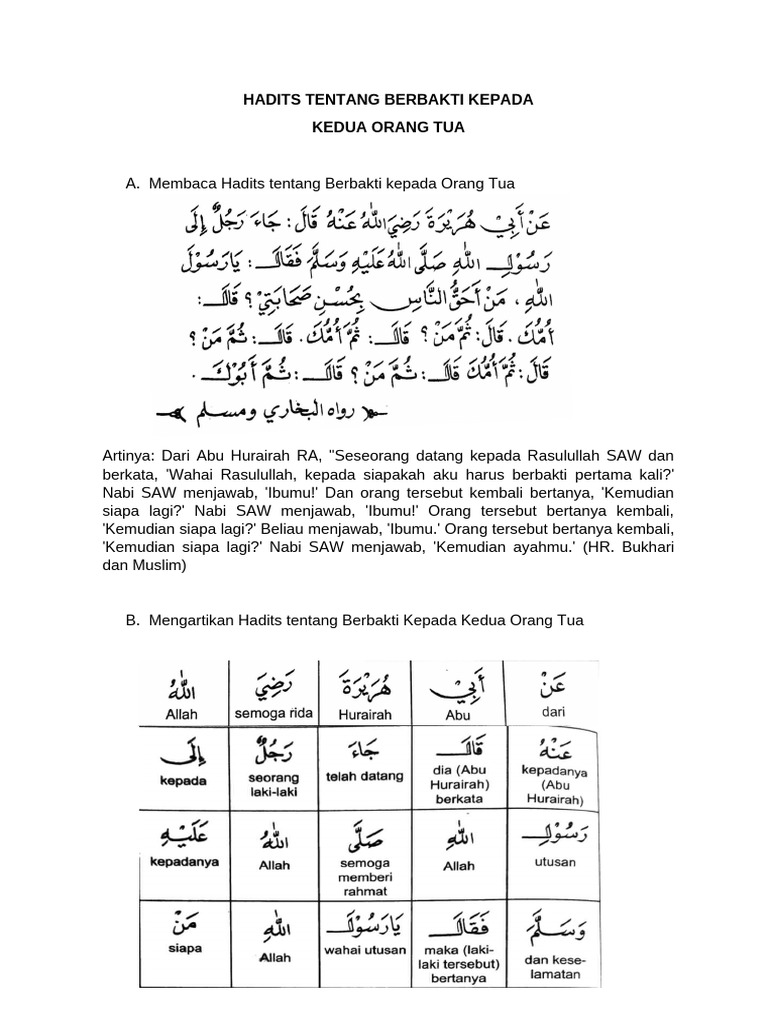 HADITS TENTANG BERBAKTI KEPADA
KEDUA ORANG TUA
A. Membaca Hadits tentang Berbakti kepada Orang Tua
عَنْ أَبِيْ هُرَيْرَةَ رَضِيَ اللّٰهُ عَنْهُ قَالَ: جَاءَ رَجُلٌ إِلَى
رَسُوْلِ اللّٰهِ صَلَّى اللّٰهُ عَلَيْهِ وَسَلَّمَ فَقَالَ: يَارَسُوْلَ
اللّٰهِ، مَنْ أَحَقُّ النَّاسِ بِحُسْنِ صَحَابَتِيْ؟ قَالَ:
أُمُّكَ. قَالَ: ثُمَّ مَنْ؟ قَالَ: ثُمَّ أُمُّكَ. قَالَ: ثُمَّ مَنْ؟
قَالَ: ثُمَّ أُمُّكَ قَالَ: ثُمَّ مَنْ؟ قَالَ: ثُمَّ أَبُوْكَ.
رواه البخاري ومسلم
Artinya: Dari Abu Hurairah RA, "Seseorang datang kepada Rasulullah SAW dan
berkata, 'Wahai Rasulullah, kepada siapakah aku harus berbakti pertama kali?'
Nabi SAW menjawab, 'Ibumu!' Dan orang tersebut kembali bertanya, 'Kemudian
siapa lagi?' Nabi SAW menjawab, 'Ibumu!' Orang tersebut bertanya kembali,
'Kemudian siapa lagi?' Beliau menjawab, 'Ibumu.' Orang tersebut bertanya kembali,
'Kemudian siapa lagi?' Nabi SAW menjawab, 'Kemudian ayahmu.' (HR. Bukhari
dan Muslim)
B. Mengartikan Hadits tentang Berbakti Kepada Kedua Orang Tua
عَنْ أَبِيْ هُرَيْرَةَ رَضِيَ اللّٰهُ
Allah semoga rida Hurairah Abu dari
عَنْهُ قَالَ جَاءَ رَجُلٌ إِلَى
kepada seorang telah datang dia (Abu kepadanya
laki-laki Hurairah) (Abu
berkata Hurairah)
رَسُوْلِ اللّٰهِ صَلَّى اللّٰهُ عَلَيْهِ
kepadanya Allah semoga Allah utusan
memberi
rahmat
وَسَلَّمَ فَقَالَ يَارَسُوْلَ اللّٰهِ مَنْ
siapa Allah wahai utusan maka (laki- dan kese-
laki tersebut) lamatan
bertanya